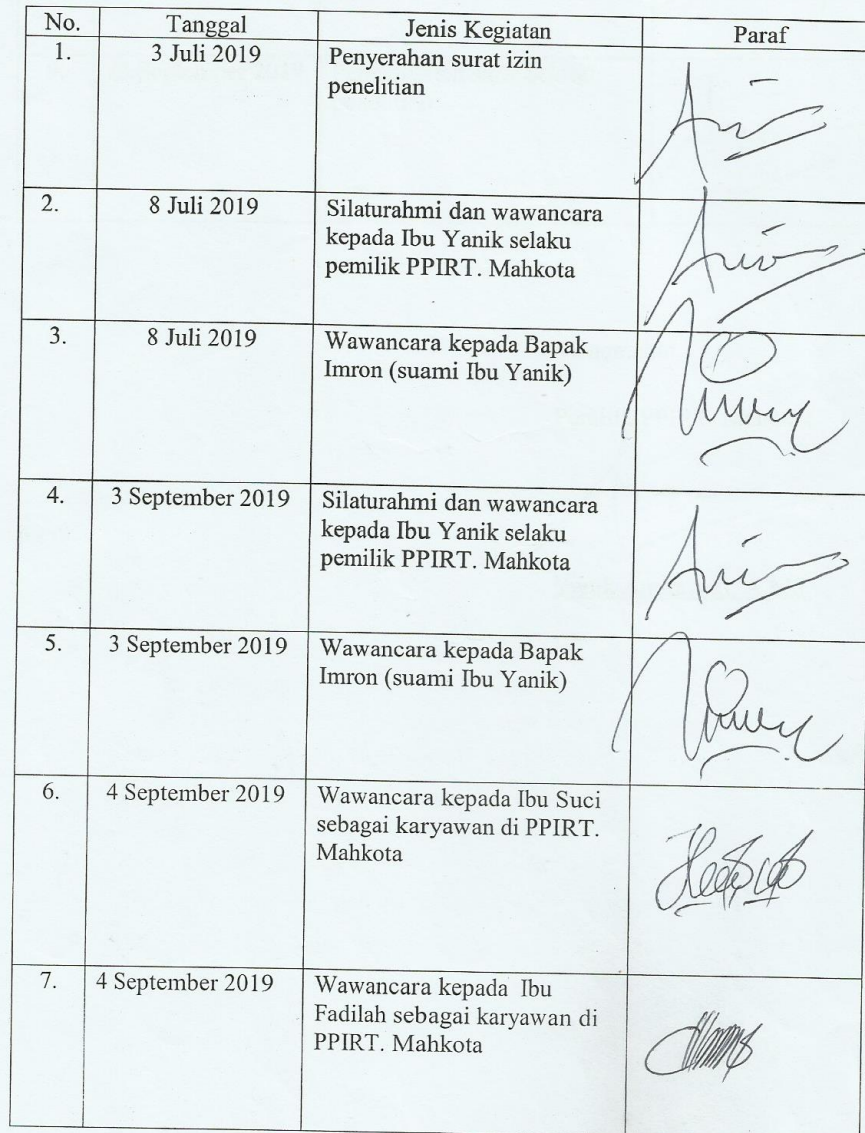 No. Tanggal Jenis Kegiatan Paraf
1. 3 Juli 2019 Penyerahan surat izin
penelitian
2. 8 Juli 2019 Silaturahmi dan wawancara
kepada Ibu Yanik selaku
pemilik PPIRT. Mahkota
3. 8 Juli 2019 Wawancara kepada Bapak
Imron (suami Ibu Yanik)
4. 3 September 2019 Silaturahmi dan wawancara
kepada Ibu Yanik selaku
pemilik PPIRT. Mahkota
5. 3 September 2019 Wawancara kepada Bapak
Imron (suami Ibu Yanik)
6. 4 September 2019 Wawancara kepada Ibu Suci
sebagai karyawan di PPIRT.
Mahkota
7. 4 September 2019 Wawancara kepada Ibu
Fadilah sebagai karyawan di
PPIRT. Mahkota